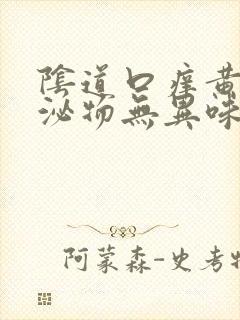 陰道口痒黄
泌物無異味
阿蒙森-史考特